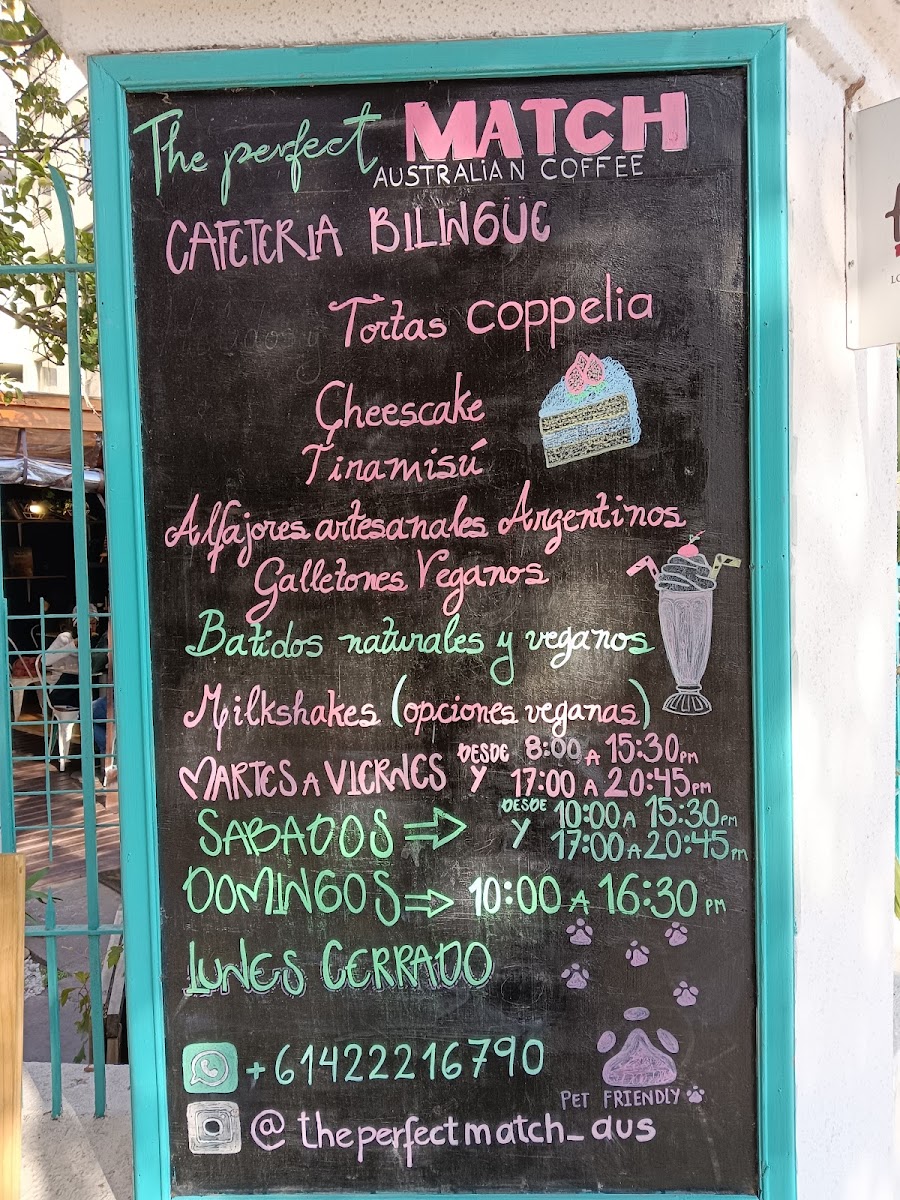 The perfect MATCH
AUSTRALIAN COFFEE
CAFETERIA BILINGÜE
Tortas coppelia
Cheescake
Tiramisú
Alfajores artesanales Argentinos
Galletones Veganos
Batidos naturales y veganos
Milkshakes (opciones veganas)
MARTES A VIERNES DESDE 8:00 A 15:30 PM
Y 17:00 A 20:45 PM
SABADOS ⇒ DESDE 10:00 A 15:30 PM
Y 17:00 A 20:45 PM
DOMINGOS ⇒ 10:00 A 16:30 PM
LUNES CERRADO
+61422216790
PET FRIENDLY
@ theperfectmatch_aus